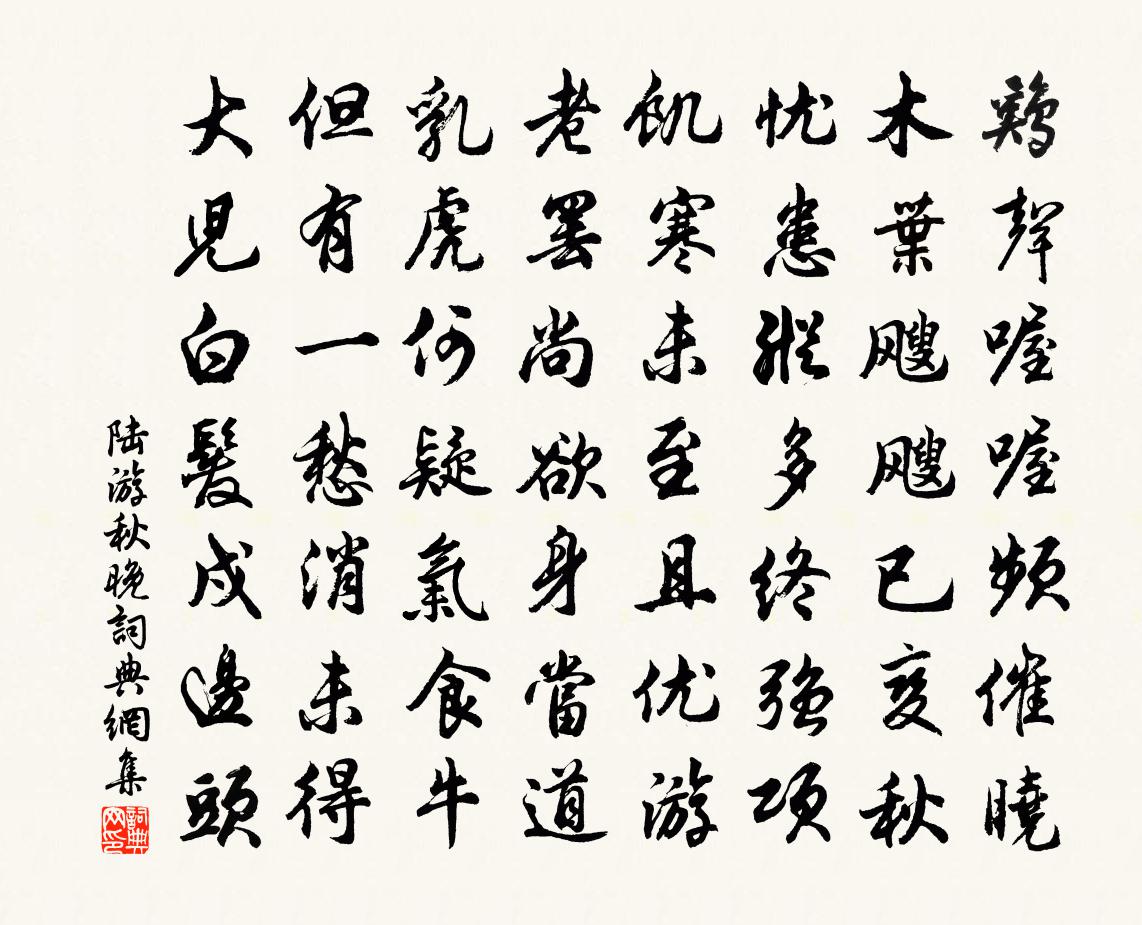 鷄聲喔喔頻催曉
木葉飕飕已变秋
忧患縱多終强項
飢寒未至且优游
老罢尚欲身當道
乳虎何疑氣食牛
但有一愁消未得
大児白髮戍邊頭
陆游秋晚詞典網集
詞典网印